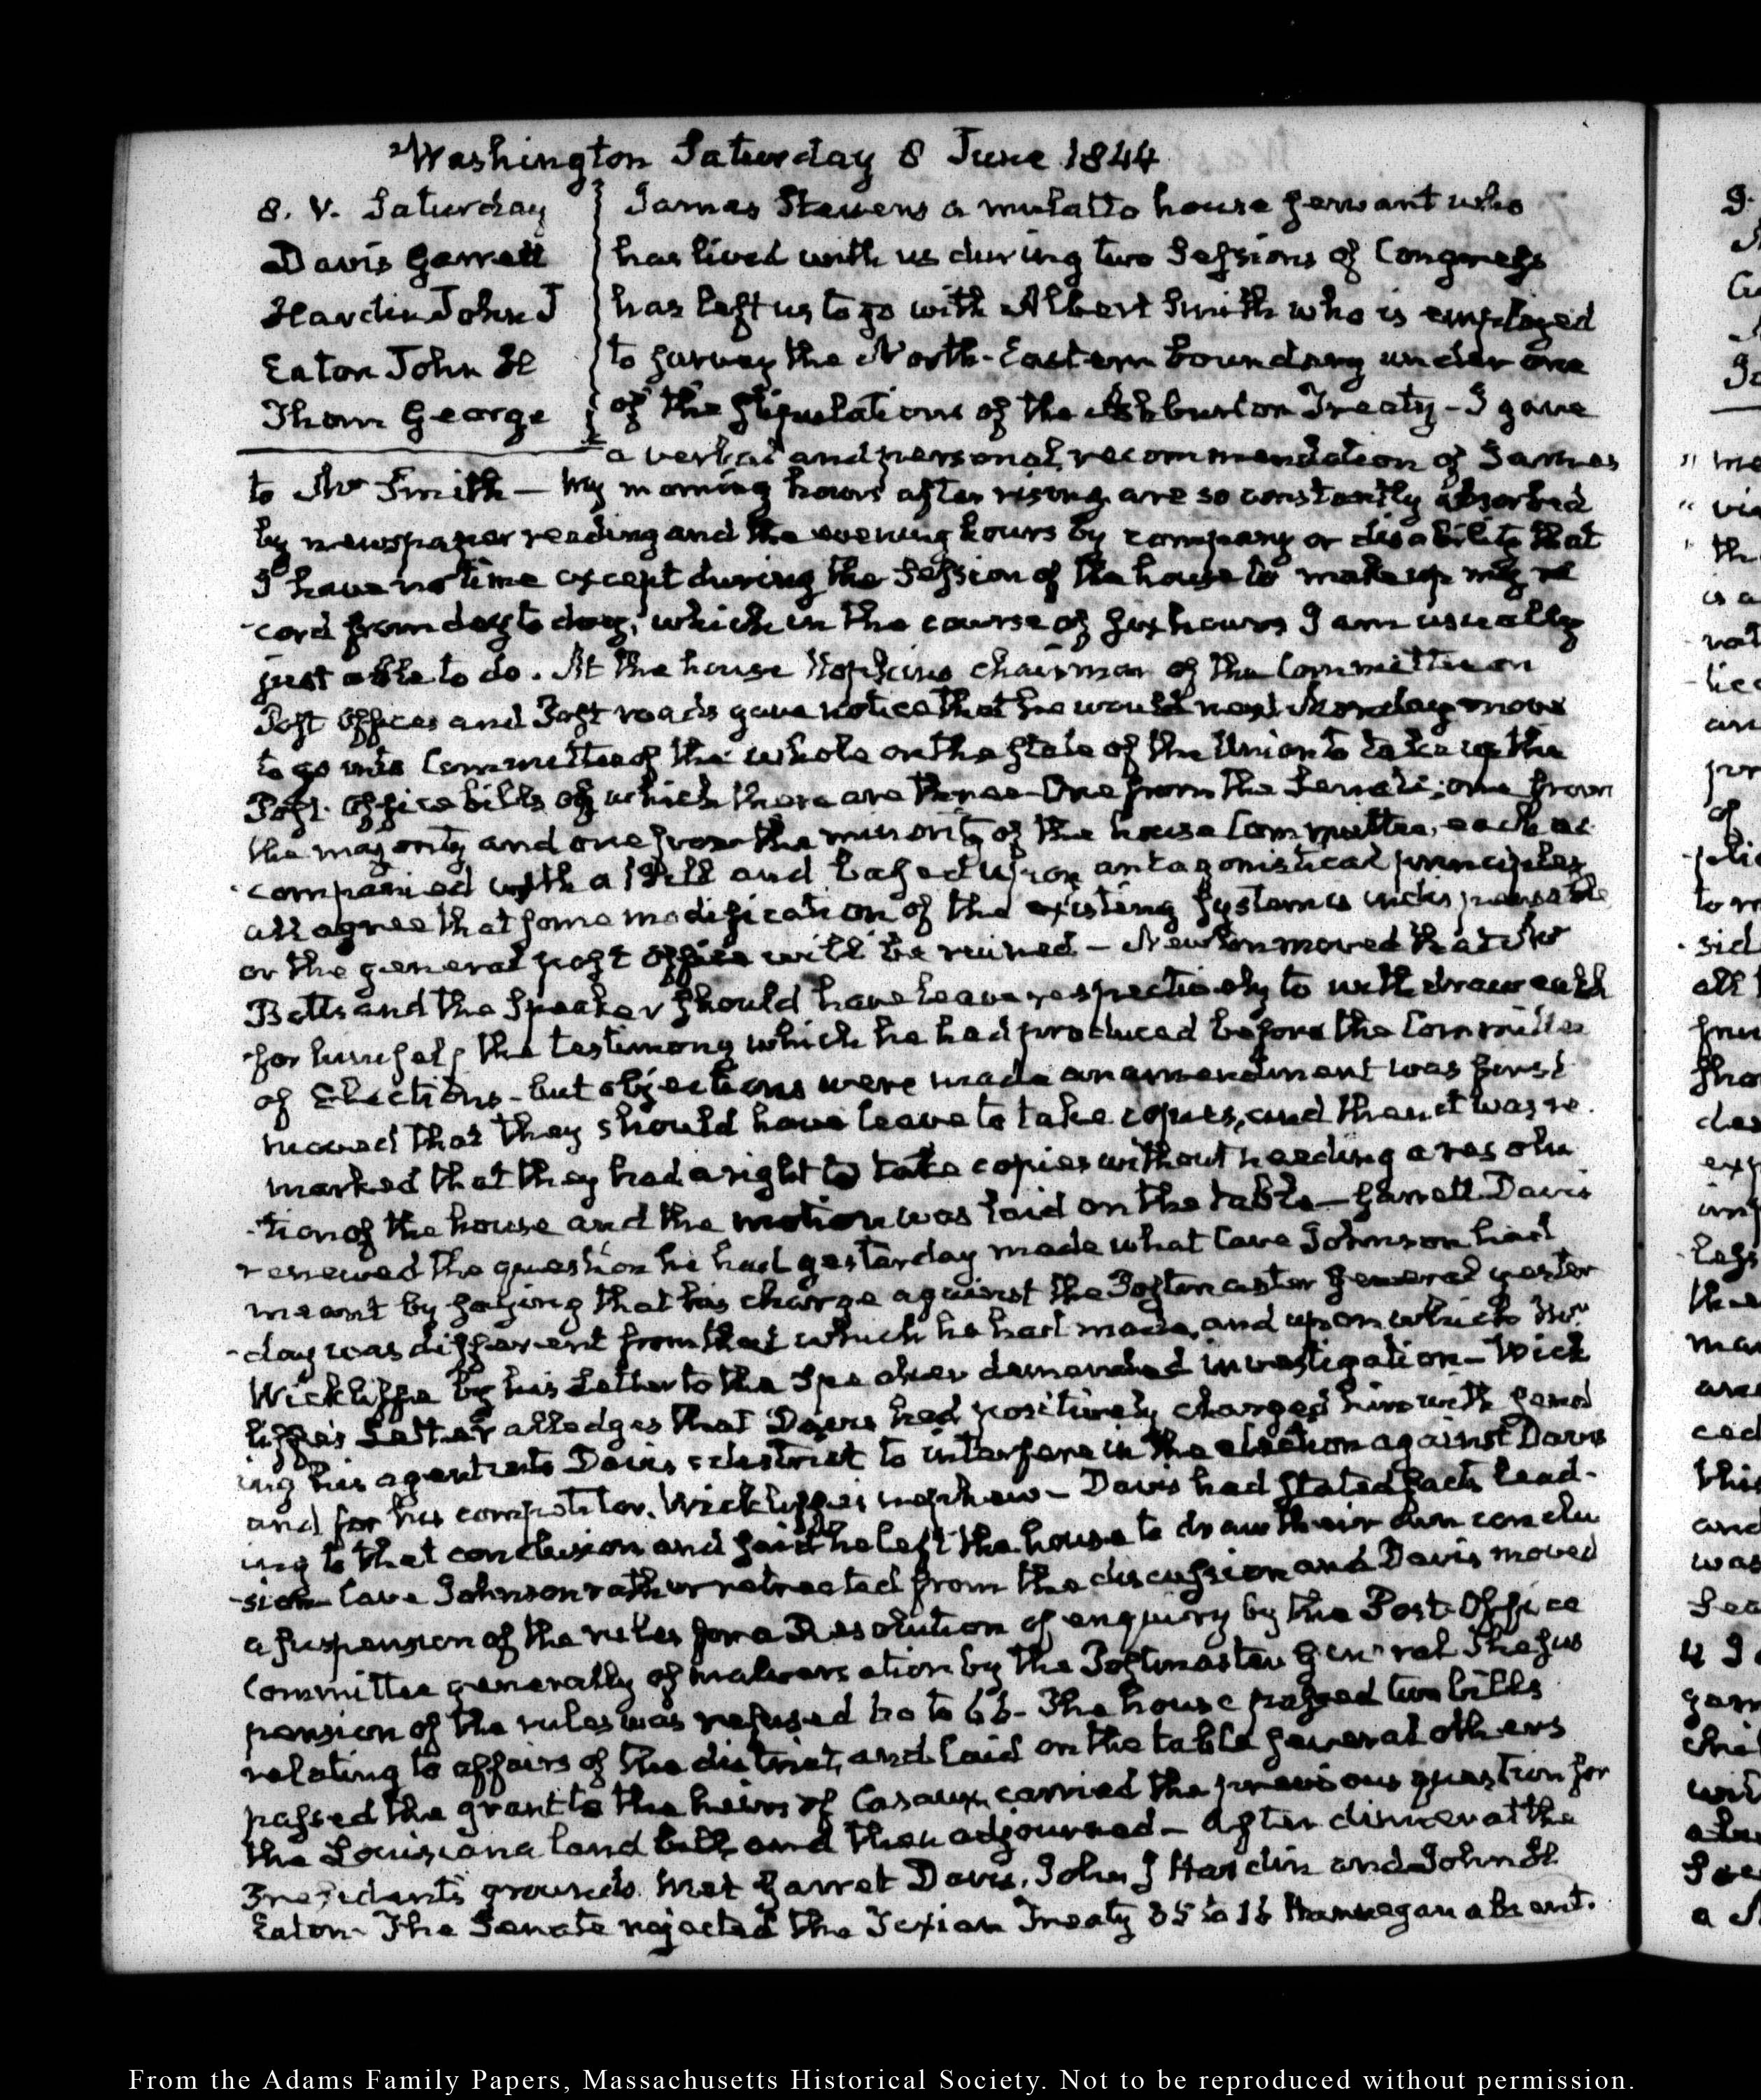 Washington Saturday 8 June 1844
8. V. Saturday
Davis Garrett
Hardin John J
Eaton John H
Thom George
James Stevens a mulatto house servant who
has lived with us during two Sessions of Congress
has left us to go with Albert Smith who is employed
to survey the North-Eastern boundary under one
of the stipulations of the Ashburton Treaty - I gave
a verbal and personal recommendation of James
to Mr Smith — My morning hours after rising are so constantly absorbed
by newspaper reading and the evening hours by company or disability that
I have no time except during the Session of the house to make up my re
-cord from day to day, which in the course of six hours I am usually
just able to do. At the house Hopkins chairman of the Committee on
Post Offices and Post roads gave notice that he would next Monday move
to go into Committee of the whole on the state of the Union to take up the
Post Office bills of which there are three One from the Senate; one from
the majority and one from the minority of the house Committee, each ac
-companied with a Bill and based upon antagonistical principles
all agree that some modification of the existing system is indispensable
or the general post office will be ruined - Newton moved that Mr
Botts and the Speaker should have leave respectively to withdraw each
for himself, the testimony which he had produced before the Committee
of Elections - but objections were made an amendment was first
moved that they should have leave to take copies, and then it was re
marked that they had a right to take copies without needing a resolu
-tion of the house and the motion was laid on the table — Garrett Davis
renewed the question he had yesterday made what Cave Johnson had
meant by saying that his charge against the Postmaster General yester
-day was different from that which he had made, and upon which Mr
Wickliffe by his Letter to the Speaker demanded investigation - Wick
liffe's Letter alledges that Davis had positively charged him with send
ing his agent into Davis's district to interfere in the election against Davis
and for his competitor, Wickliffe's nephew - Davis had stated facts lead-
ing to that conclusion and said he left the house to draw their own conclu
-sion Cave Johnson rather retracted from the discussion and Davis moved
a suspension of the rules for a Resolution of enquiry by the Post-Office
Committee generally of malversation by the Postmaster General The sus
pension of the rules was refused to 63 - The house passed two bills
relating to affairs of the district, and laid on the table several others
passed the grant to the heirs of Casaux, carried the previous question for
the Louisiana land bill and then adjourned - After dinner at the
President's grounds. Met Garret Davis, John J Hardin and John H
Eaton - The Senate rejected the Texian Treaty 35 to 16 Hannegan absent.
From the Adams Family Papers, Massachusetts Historical Society. Not to be reproduced without permission.